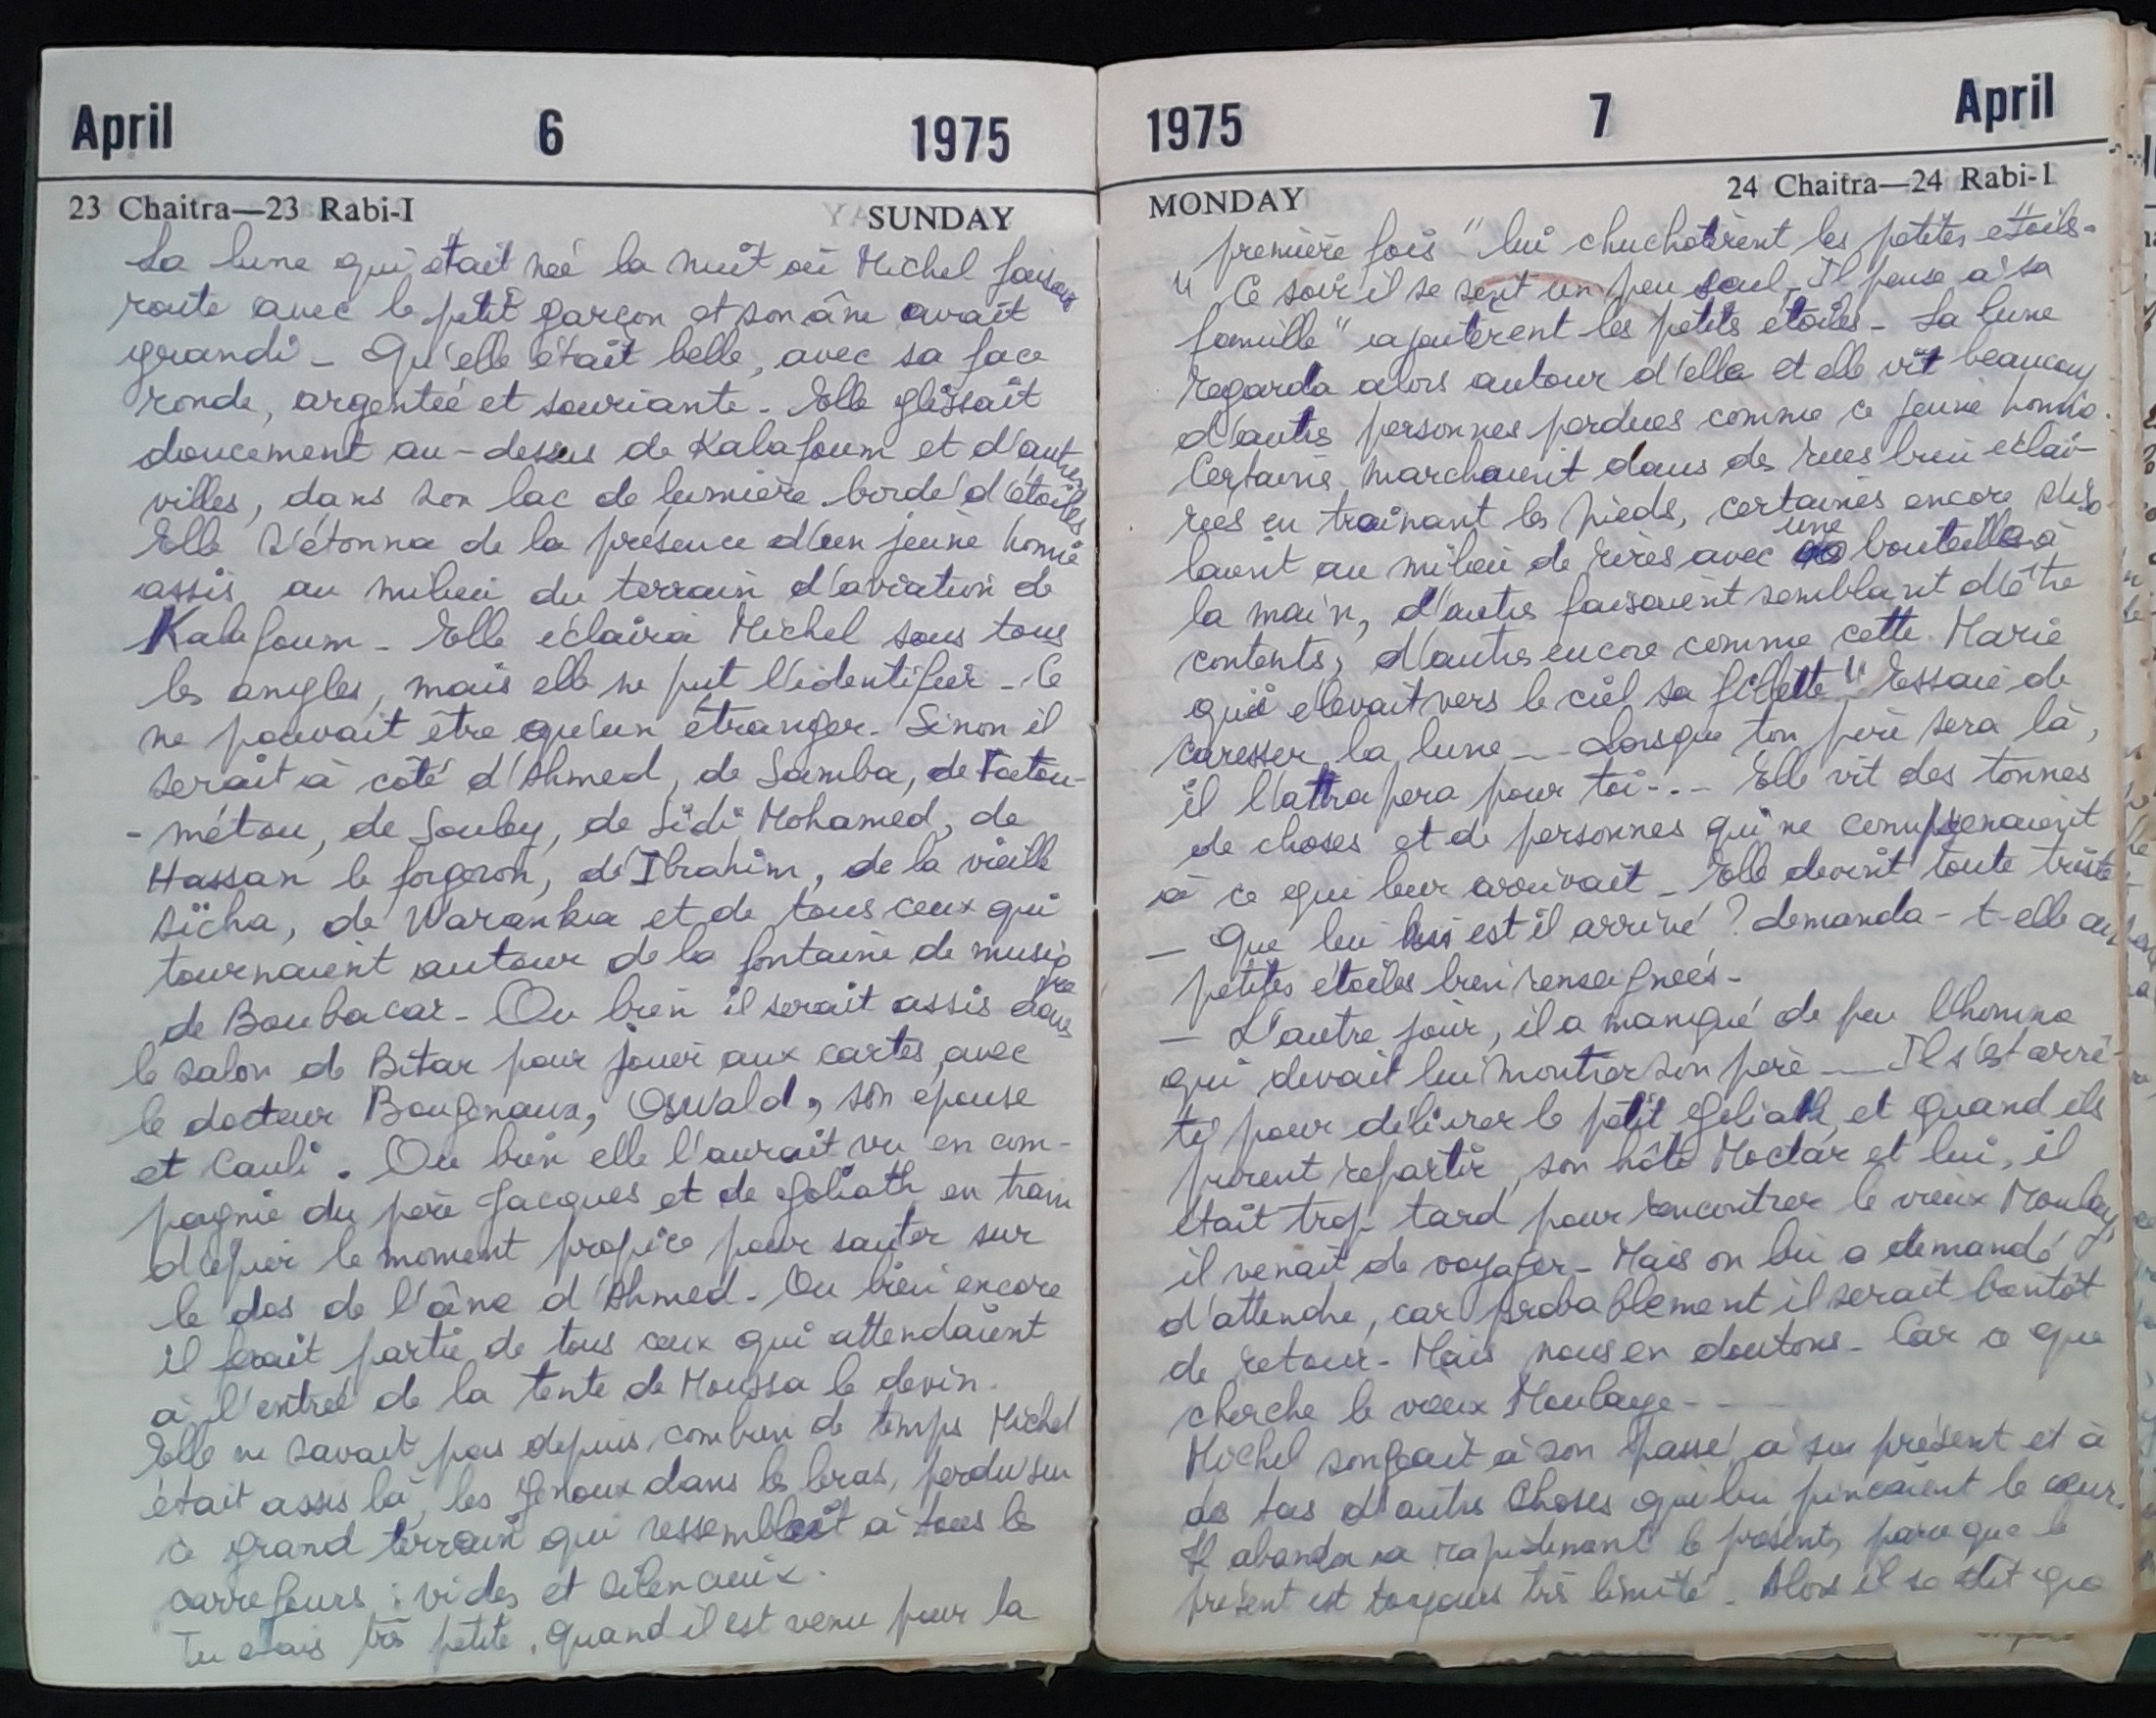 April 6 1975
23 Chaitra—23 Rabi-I SUNDAY
La lune qui était née la nuit où Michel faisait
route avec le petit garçon et son âne avait
grandi - Qu'elle était belle, avec sa face
ronde, argenteé et souriante - Elle glissait
doucement au-dessus de Kalafoum et d'autres
villes, dans son lac de lumière bordé d'étoiles
Elle s'étonna de la présence d'un jeune homme
assis au milieu du terrain d'aviation de
Kalafoum - Elle éclaira Michel sous tous
les angles, mais elle ne put l'identifier - Ce
ne pouvait être qu'un étranger - Sinon il
serait à côté d'Ahmed, de Samba, de Fatou-
- métou, de Souley, de Sidi Mohamed, de
Hassan le forgeron, d'Ibrahim, de la vieille
Aïcha, de Waranka et de tous ceux qui
tournaient autour de la fontaine de musique
de Boubacar - Ou bien il serait assis dans
le salon de Bitar pour jouer aux cartes avec
le docteur Bougenaux, Oswald, son épouse
et Cauli. Ou bien elle l'aurait vu en com-
pagnie du père Jacques et de Goliath en train
d'épier le moment propice pour sauter sur
le dos de l'âne d'Ahmed - Ou bien encore
il ferait partie de tous ceux qui attendaient
à l'entreé de la tente de Moussa le devin.
Elle ne savait pas depuis combien de temps Michel
était assis là, les genoux dans les bras, perdu sur
ce grand terrain qui ressemblait à tous les
carrefours : vides et silencieux.
Tu étais très petite, quand il est venu pour la
1975 7 April
MONDAY 24 Chaitra—24 Rabi-1
première fois " lui chuchotèrent les petites étoiles -
" Ce soir il se sent un peu seul - Il pense à sa
famille " ajoutèrent les petites étoiles - La lune
regarda alors autour d'elle et elle vit beaucoup
d'autres personnes perdues comme ce jeune homme.
Certaines marchaient dans des rues bien éclai-
reés en traînant les pieds, certaines encore
laient au milieu de rires avec une bouteille à
la main, d'autres faisaient semblant d'être
contents, d'autres encore comme cette Marie
qui élevait vers le ciel sa fillette " Essaie de
caresser la lune -- Lorsque ton père sera là,
il l'attrapera pour toi --- Elle vit des tonnes
de choses et de personnes qui ne comprenaient
à ce qui leur arrivait - Elle devint toute triste
- Que lui est il arrivé ? demanda-t-elle aux
petites étoiles bien renseigneés -
- L'autre jour, il a manqué de peu l'homme
qui devait lui montrer son père -- Il s'est arrê-
té pour délivrer le petit Goliath et quand ils
purent repartir, son hôte Moctar et lui, il
était trop tard pour rencontrer le vieux Moulaye,
il venait de voyager - Mais on lui a demandé
d'attendre, car probablement il serait bientôt
de retour - Mais nous en doutons - Car ce que
cherche le vieux Moulaye - - -
Michel songeait à son passé, à son présent et à
des tas d'autres choses qui lui pinçaient le cœur.
Il abandonna rapidement le présent, parce que le
présent est toujours très limité - Alors il se dit que